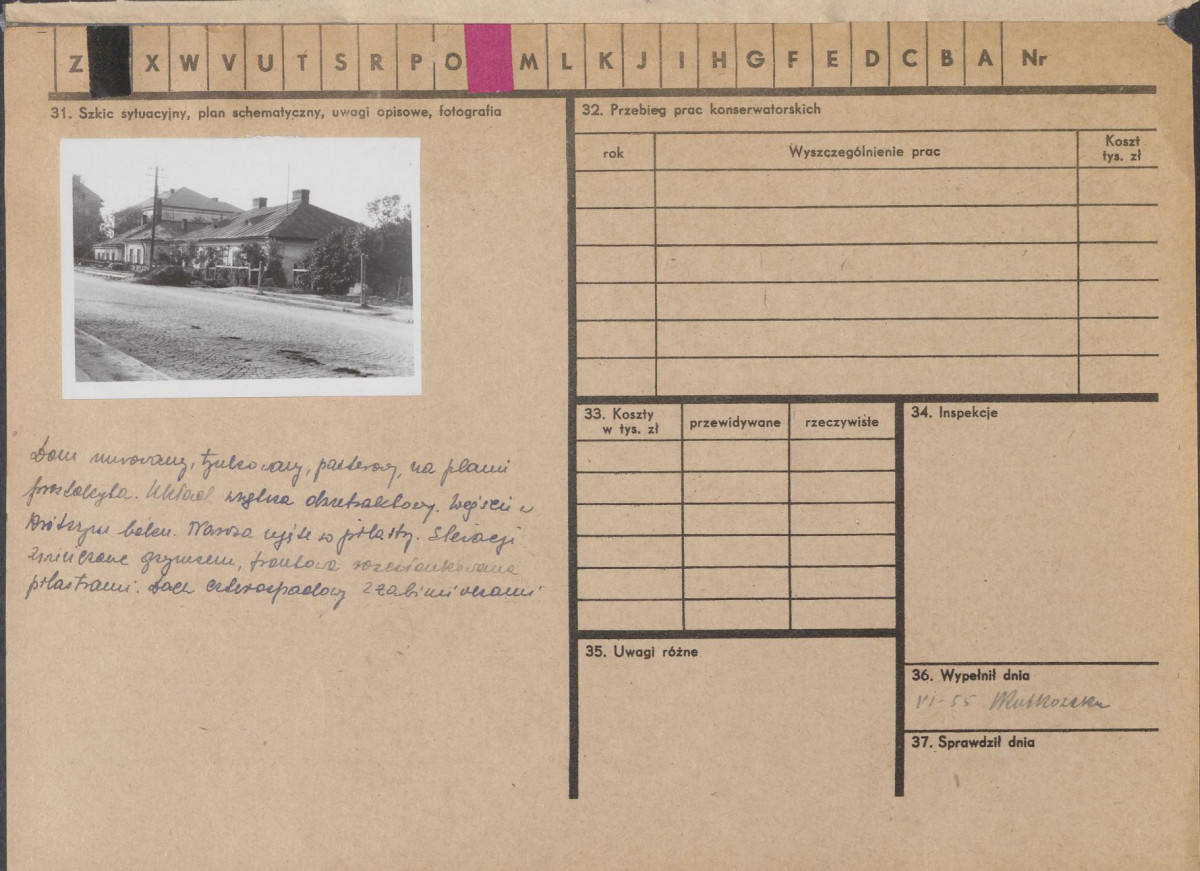 Z X W V U T S R P O M L K J I H G F E D C B A Nr
31. Szkic sytuacyjny, plan schematyczny, uwagi opisowe, fotografia
Dom murowany, tynkowany, parterowy, na planie
prostokąta. Układ wnętrza dwutraktowy. Wejście w
krótszym boku. Naroża ujęte w pilastry. Elewacje
zwieńczone gzymsem, frontowa rozczłonkowana
pilastrami. Dach czterospadowy
32. Przebieg prac konserwatorskich
rok Wyszczególnienie prac Koszt
tys. zł
33. Koszty
w tys. zł
przewidywane rzeczywiste
34. Inspekcje
35. Uwagi różne
36. Wypełnił dnia
VI-55
37. Sprawdził dnia